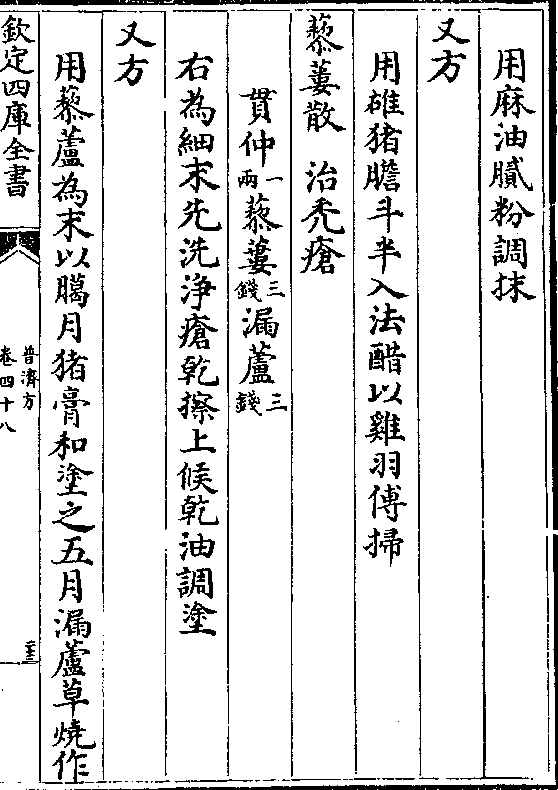 用麻油膩粉調抹
又方
用雄猪膽斗半入法醋以雞羽傅掃
藜蔞散　治禿瘡
貫仲一兩藜蔞三錢漏蘆三錢
右為細末先洗浄瘡乾擦上候乾油調塗
又方
用藜蘆為末以臈月猪膏和塗之五月漏蘆草燒作
欽定四庫全書
普濟方
卷四十八